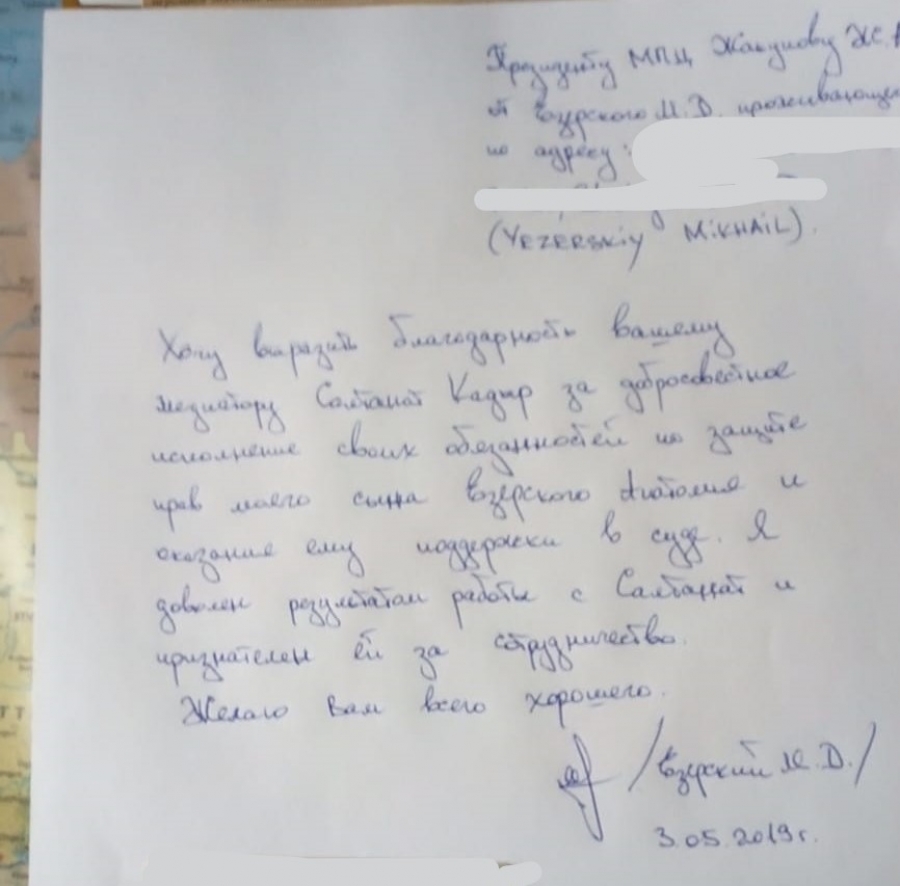 Президенту МПЦ Жакупову Ж.А
от Езерского М.Д. проживающего
по адресу:
(YEZERSKiY MiKHAiL).
Хочу выразить благодарность вашему
медиатору Салтанат Кадыр за добросовестное
исполнение своих обязанностей по защите
прав моего сына Езерского Анатолия и
оказание ему поддержки в суде. Я
доволен результатом работы с Салтанат и
признателен ей за сотрудничество.
Желаю Вам всего хорошего.
/Езерский М.Д./
3.05.2019г.